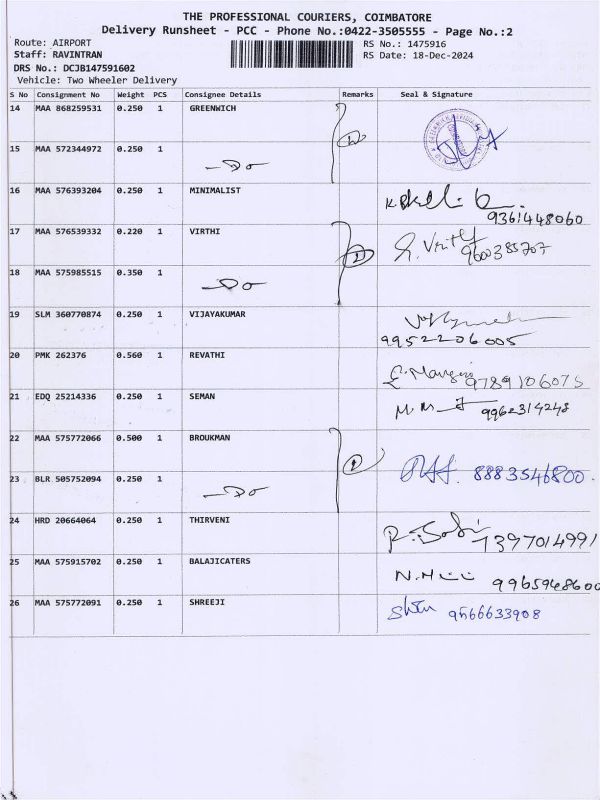 THE PROFESSIONAL COURIERS, COIMBATORE
Delivery Runsheet - PCC - Phone No.:0422-3505555 - Page No.:2
Route: AIRPORT
RS No.: 1475916
Staff: RAVINTRAN
RS Date: 18-Dec-2024
DRS No.: DCJB147591602
Vehicle: Two Wheeler Delivery
S No Consignment No Weight PCS Consignee Details Remarks Seal & Signature
14 MAA 868259531 0.250 1 GREENWICH
15 MAA 572344972 0.250 1 —Do
16 MAA 576393204 0.250 1 MINIMALIST 9361448060
17 MAA 576539332 0.220 1 VIRTHI 9600385707
18 MAA 575985515 0.350 1 —Do
19 SLM 360770874 0.250 1 VIJAYAKUMAR 9952206005
20 PMK 262376 0.560 1 REVATHI 9789106075
21 EDQ 25214336 0.250 1 SEMAN 9962314248
22 MAA 575772066 0.500 1 BROUKMAN 8883546800
23 BLR 505752094 0.250 1 —Do
24 HRD 20664064 0.250 1 THIRVENI 7397014991
25 MAA 575915702 0.250 1 BALAJICATERS 9965968600
26 MAA 575772091 0.250 1 SHREEJI 9566633908